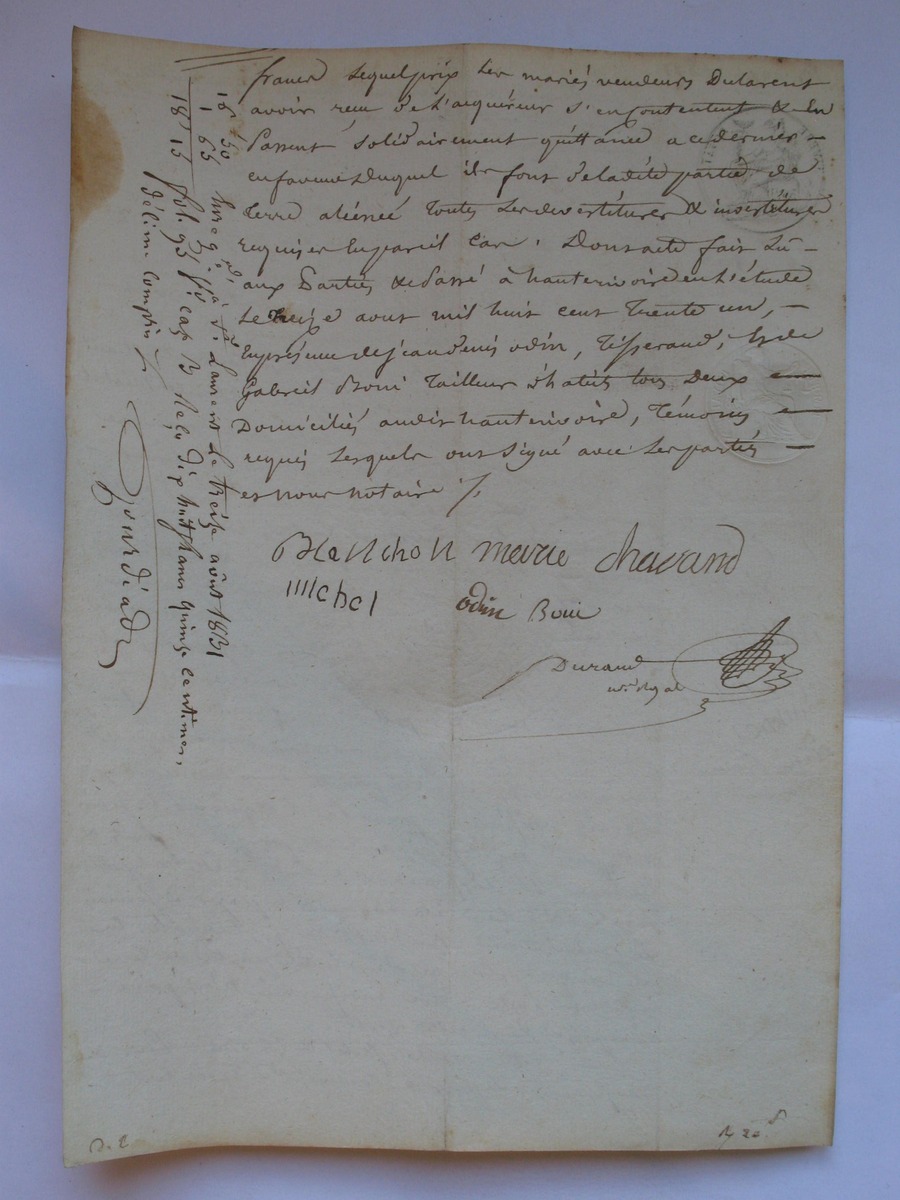 francs Lequel prix Les mariés vendeurs Déclarent
avoir reçu de L'acquéreur s'en Contentent & En
Passent solidairement quittance a ce dernier –
en faveur Duquel ils font de la dite partie de
terre aliénée toutes Les devestitures & investitures
requises En pareil Cas. Dont acte fait Lu –
aux Parties & passé à hauterivoire en L'étude
Le treize aout mil huit cent trente un, –
En présence de jean denis odin, Tisserand, & de
Gabriel Boui tailleur d'habits tous Deux
Domiciliés audit hauterivoire, témoins
requis Lesquels ont signé avec Les parties
et nous notaire ./.
Blanchon marie chavand
michel
odin Boui
Durand
nre Royal
16 50
1 65
18 15
Enregé à St Laurent le treize août 1831
fol. 93 Vo cas 3 Reçu dix huit francs quinze centimes,
décime compris